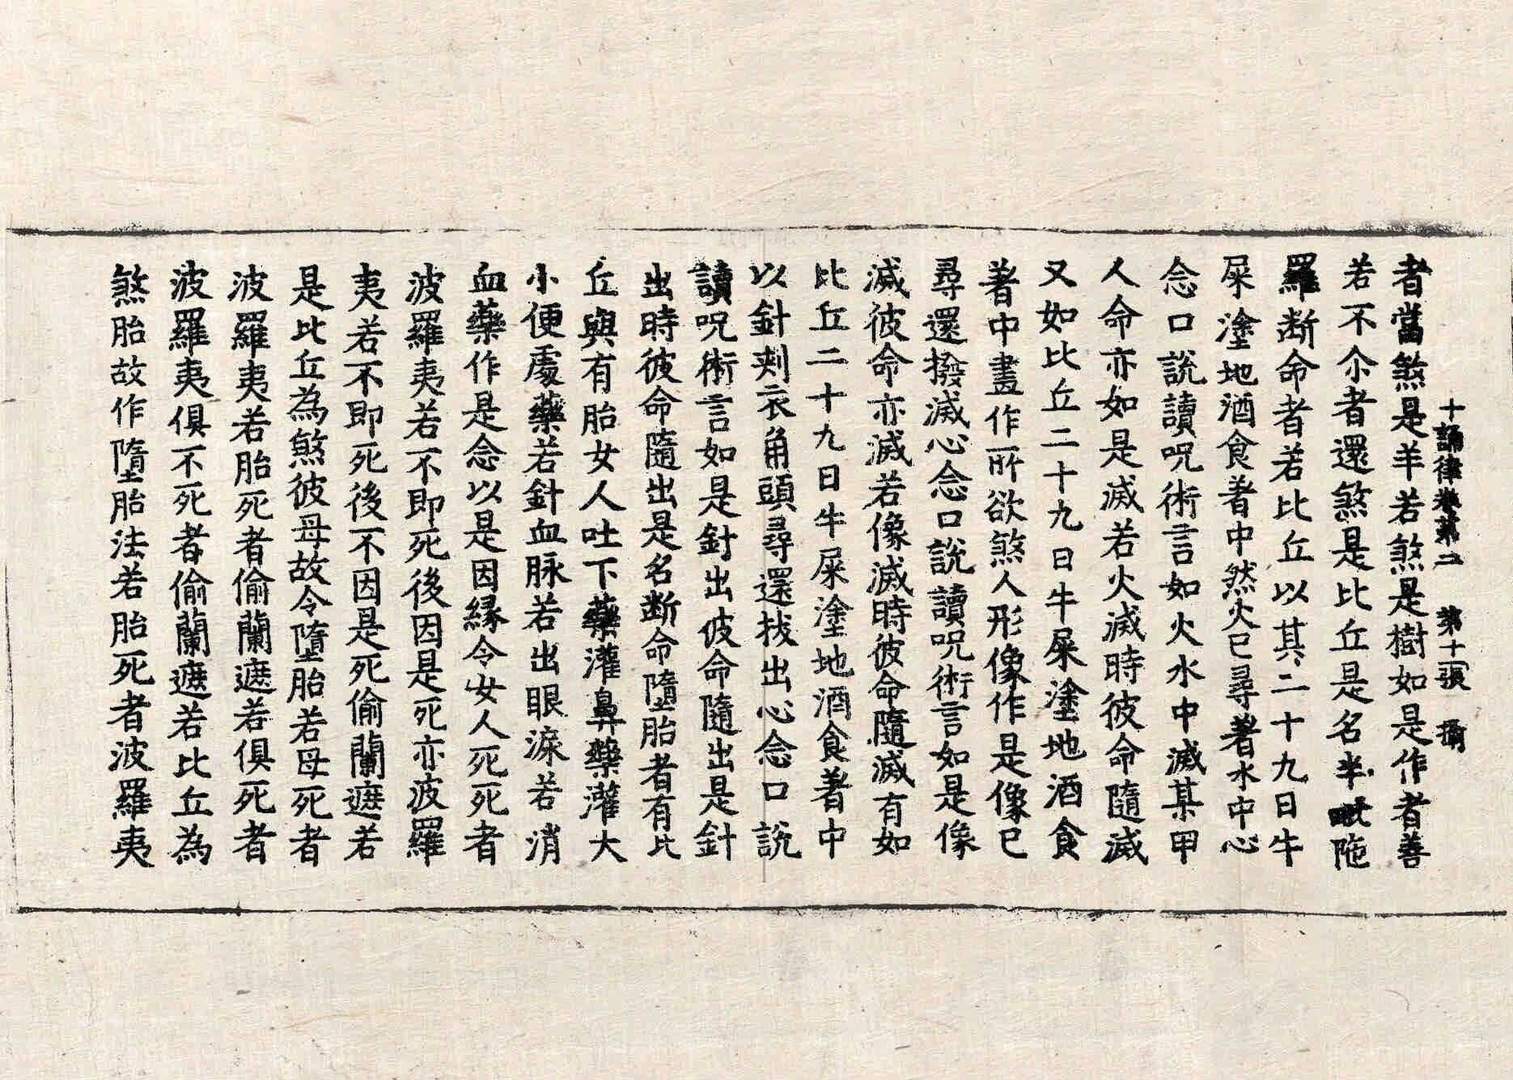 十誦律卷第二　第十張　摛
者當煞是羊若煞是樹如是作者善
若不尒者還煞是比丘是名半毗陁
羅断命者若比丘以其二十九日牛
屎塗地酒食著中然火已尋著水中心
念口說讀呪術言如火水中滅某甲
人命亦如是滅若火滅時彼命隨滅
又如比丘二十九日牛屎塗地酒食
著中畫作所欲煞人形像作是像已
尋還撥滅心念口說讀呪術言如是像
滅彼命亦滅若像滅時彼命隨滅有如
比丘二十九日牛屎塗地酒食著中
以針刾衣角頭尋還拔出心念口說
讀呪術言如是針出彼命隨出是針
出時彼命隨出是名断命墮胎者有比
丘與有胎女人吐下藥灌鼻藥灌大
小便處藥若針血脉若出眼淚若消
血藥作是念以是因縁令女人死死者
波羅夷若不即死後因是死亦波羅
夷若不即死後不因是死偷蘭遮若
是比丘為煞彼母故令墮胎若母死者
波羅夷若胎死者偷蘭遮若俱死者
波羅夷俱不死者偷蘭遮若比丘為
煞胎故作墮胎法若胎死者波羅夷